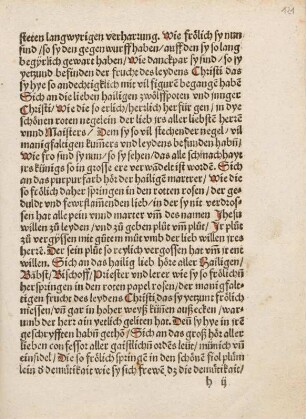 steten langwyrigen verharrung. Wie frölich sy nun
sind/ so sy den gegenwurff haben/ auff den sy so lang
begyrlich gewart haben/ Wie danckpar sy sind/ so sy
yetzund befinden der frucht des leydens Christi das
sy hye so andechtiklich mit vil figuren begangē habē
Sich an die lieben hailigen zwölffpoten vnd junger
Christi/ wie die so erlich/ herrlich her für gen/ in dye
schönen roten negelein der lieb jrs aller liebstē herrē
vnnd Maisters/ Dem sy so vil stechender negel/ vil
manigfaltigen kum̄ers vnd leydens befunden habn̄/
Wie fro sind sy nun/ so sy sehen/ das alle schmachhayt
jrs künigs so in grosse eer verwādelt ist wordē. Sich
an das purpurfarb hör der hailigē martrer/ Wie die
so frölich daher springen in den rotten rosen/ der ge⸗
duldt vnd fewrflam̄enden lieb/ in der sy nit verdros⸗
sen hat alle pein vnnd marter vm̄ des namen Jhesu
willen zů leyden/ vnd zů geben vm̄ plůt/ Jr plůt
zů vergyssen mit gůtem můt vmb der lieb willen jres
herrē. Der sein plůt so reylich vergossen hat vm̄ jrent
willen. Sich an das hailig lieb höre aller Hailigen/
Bäbst/ Bischoff/ Priester vnd lerer wie sy so frölichn̄
her springen in den roten papel rosen/ der manigfal⸗
tigen frucht des leydens Christi das sy yetzunt frölich
niessen/ vn̄ gar in hohen weyß künnen außecken/ war⸗
umb der herr ain yetlich gelitten hat. Den̄ sy hye in jrē
geschryfften habn̄ gethō/ Sich an das groß hör aller
lieben confessor aller gaistlichn̄ ordēs leüt/ münich vn̄
einsidel/ Die so frölich springē in den schönē fiol plům
lein ď demütikait wie sy sich frewē/ dz die demütikait/
h ij